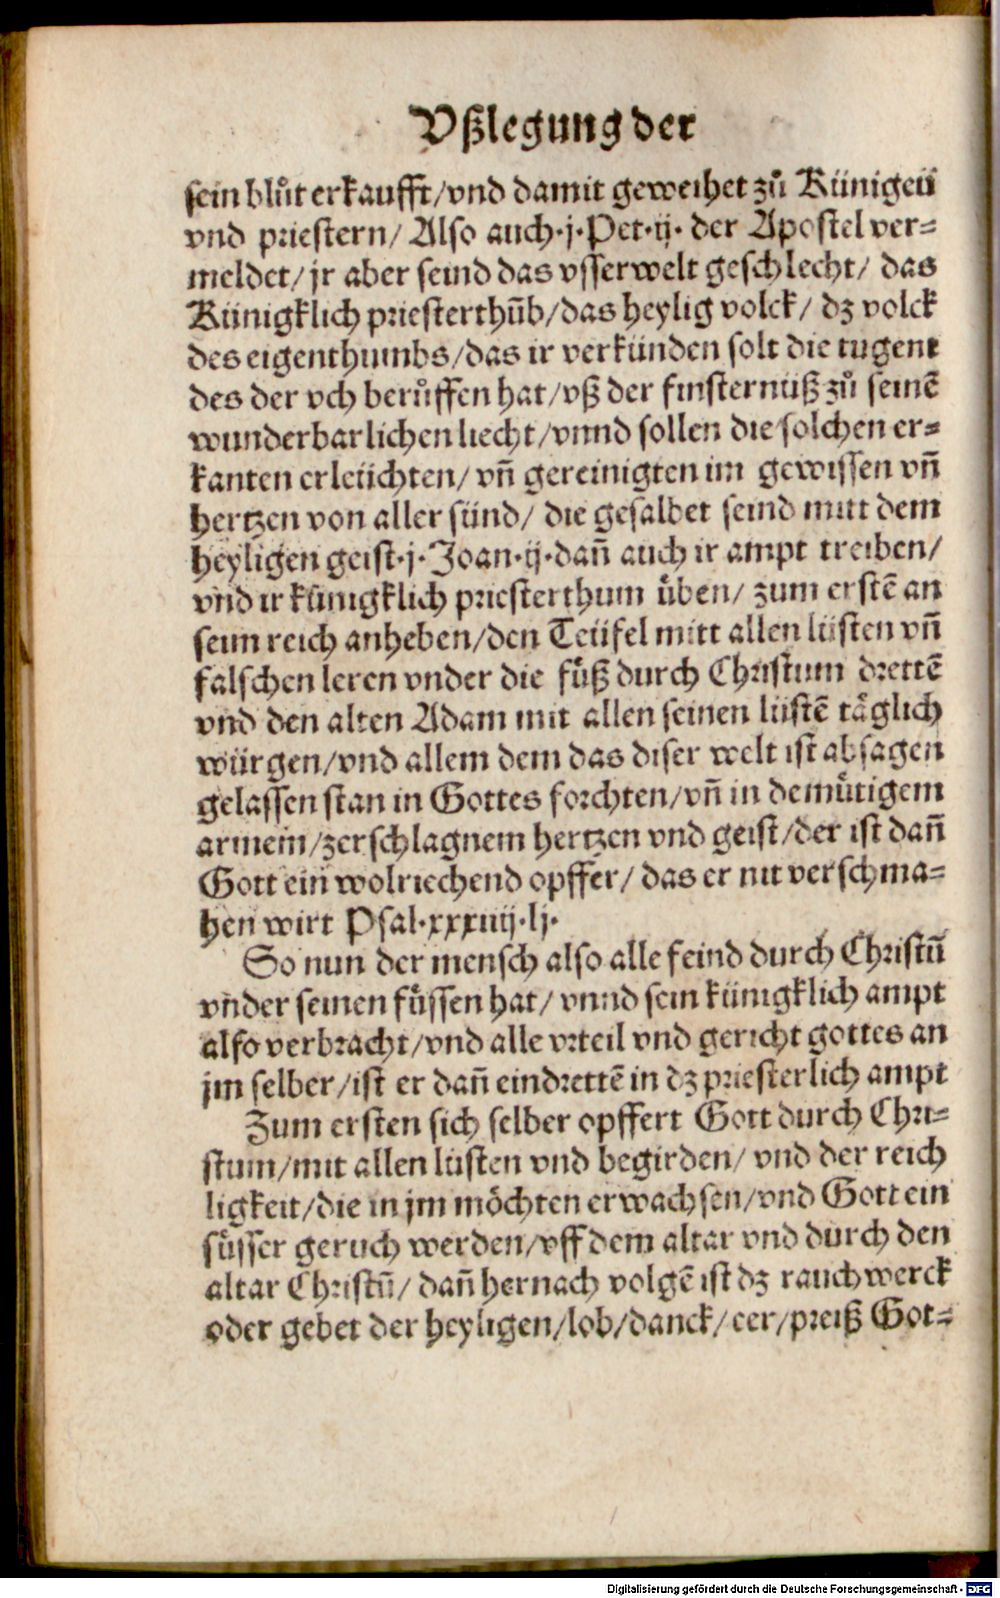 Vßlegung der
sein blůt erkaufft/vnd damit geweihet zů Künigen
vnd priestern/ Also auch·j·Pet·ij· der Apostel ver⸗
meldet/ jr aber seind das vsserwelt geschlecht/ das
Künigklich priesterthūb/das heylig volck/ dz volck
des eigenthumbs/das ir verkünden solt die tugent
des der vch berůffen hat/vß der finsternüß zů seinē
wunderbarlichen liecht/vnnd sollen die solchen er⸗
kanten erleüchten/ vñ gereinigten im gewissen vñ
hertzen von aller sünd/ die gesalbet seind mitt dem
heyligen geist·j·Joan·ij·dañ auch ir ampt treiben/
vnd ir künigklich priesterthum üben/ zum erstē an
seim reich anheben/den Teüfel mitt allen lüsten vñ
falschen leren vnder die füß durch Christum drettē
vnd den alten Adam mit allen seinen lüstē täglich
würgen/vnd allem dem das diser welt ist absagen
gelassen stan in Gottes forchten/vñ in demütigem
armem/zerschlagnem hertzen vnd geist/der ist dañ
Gott ein wolriechend opffer/ das er nit verschma⸗
hen wirt Psal·xxxiiij·lj·
So nun der mensch also alle feind durch Christū
vnder seinen füssen hat/ vnnd sein künigklich ampt
also verbracht/vnd alle vrteil vnd gericht gottes an
jm selber/ist er dañ eindrettē in dz priesterlich ampt
Zum ersten sich selber opffert Gott durch Chri⸗
stum/mit allen lüsten vnd begirden/ vnd der reich
ligkeit/die in jm möchten erwachsen/vnd Gott ein
süsser geruch werden/vff dem altar vnd durch den
altar Christū/ dañ hernach volgē ist dz rauchwerck
oder gebet der heyligen/lob/danck/eer/preiß Got⸗
Digitalisierung gefördert durch die Deutsche Forschungsgemeinschaft - DFG